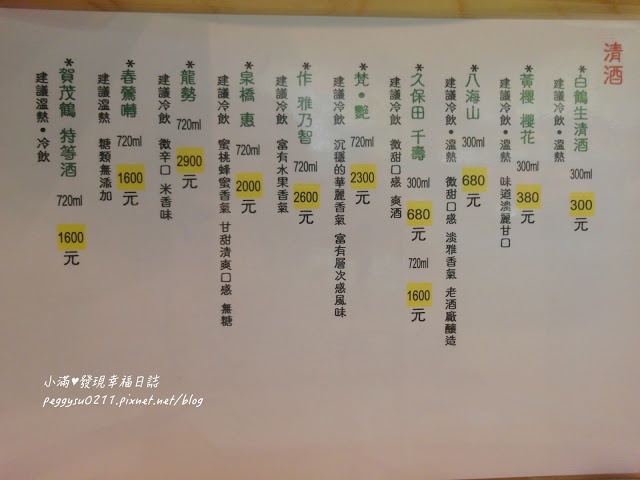 清酒
*白鶴生清酒 300ml 300元
建議冷飲・溫熱
*黃櫻 櫻花 300ml 380元
建議冷飲・溫熱 味道淡麗甘口
*八海山 300ml 680元
建議冷飲・溫熱 微甜口感 淡雅香氣 老酒廠釀造
*久保田 千壽 300ml 680元 720ml 1600元
建議冷飲 微甜口感 爽酒
*梵・艷 720ml 2300元
建議冷飲 沉穩的華麗香氣 富有層次感風味
*作 雅乃智 720ml 2600元
建議冷飲 富有水果香氣
*泉橋 惠 720ml 2000元
建議冷飲 蜜桃蜂蜜香氣 甘甜清爽口感 無糖
*龍勢 720ml 2900元
建議冷飲 微辛口 米香味
*春鶯囀 720ml 1600元
建議溫熱 糖類無添加
*賀茂鶴 特等酒 720ml 1600元
建議溫熱・冷飲
小滿♥發現幸福日誌
peggysu0211.pixnet.net/blog